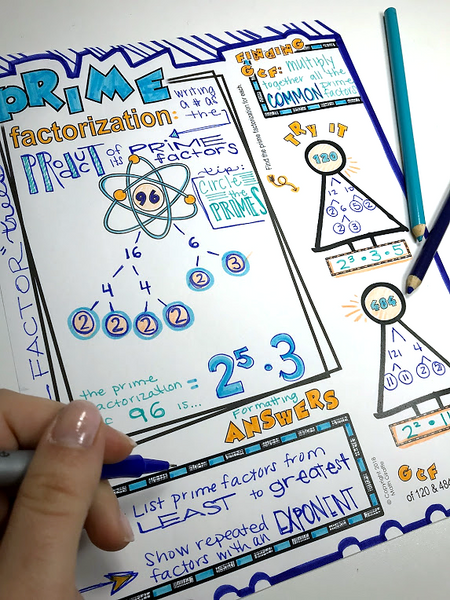 PRIME
factorization:
writing
a # as
the
PRODUCT of its PRIME
factors
FACTOR trees
tip:
Circle
the
PRIMES
96
16 6
4 4 2 3
2 2 2 2
the prime
factorization =
96 is...
2⁵·3
Formatting
ANSWERS
List prime factors from
LEAST to greatest
Show repeated
factors with an EXPONENT
FINDING
GCF: multiply
together all the
COMMON prime
factors
Find the prime factorization for each.
TRY IT
120
12 10
2 6 5 2
2 3
2³·3·5
484
121 4
11 11 2 2
2²·11
GCF
of 120 & 484
© Copyright 2018
Math Giraffe